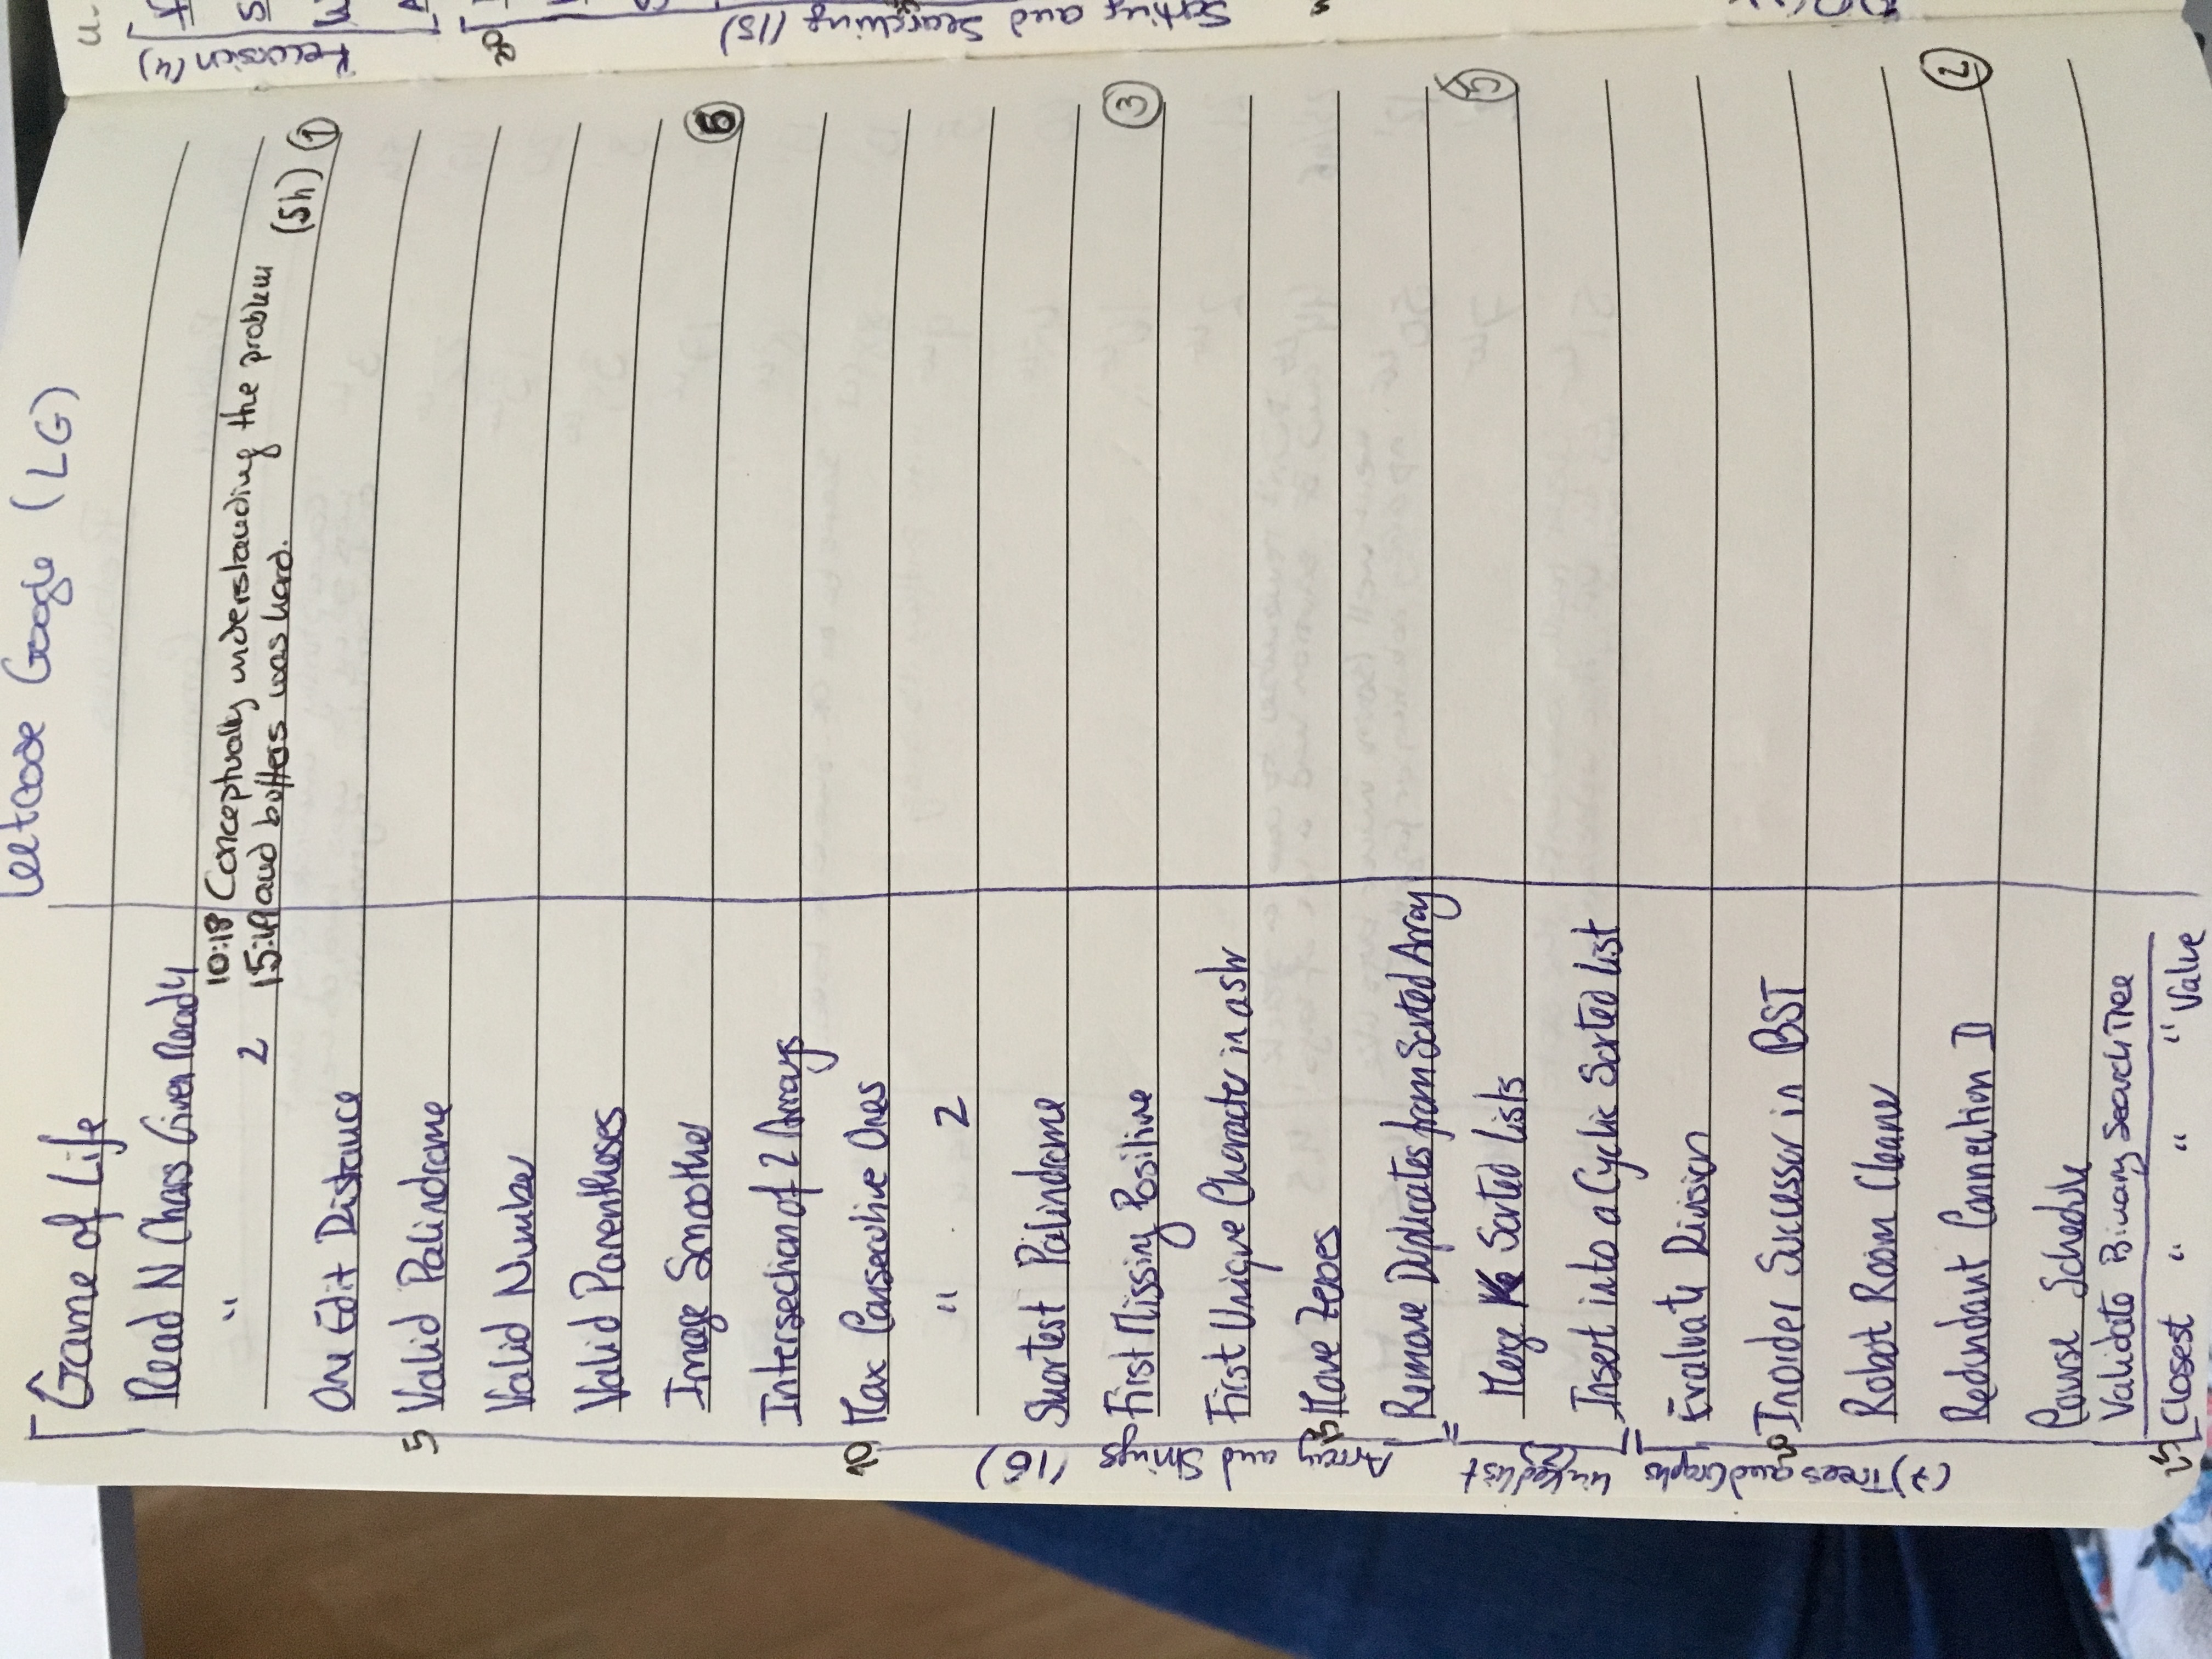 Leetcode Google (LG)
Game of Life
Read N Chars Given Read4
" 2 10:18 Conceptually understanding the problem
15:19 and buffers was hard. (5h) 1
One Edit Distance
5 Valid Palindrome
Valid Number
Valid Parentheses
Image Smoother
6
Intersection of 2 Arrays
10 Max Consecutive Ones
" 2
Shortest Palindrome
First Missing Positive
3
First Unique Character in a str
15 Move Zeroes
Remove Duplicates from Sorted Array
Merge K Sorted Lists
5
Insert into a Cyclic Sorted List
Evaluate Division
20 Inorder Successor in BST
Robot Room Cleaner
Redundant Connection II
2
Course Schedule
Validate Binary Search Tree
25 Closest " " " Value
Array and Strings (16)
Linked List
(2)
(7) Trees and Graphs
Recursion (4)
30
Sorting and Searching (15)